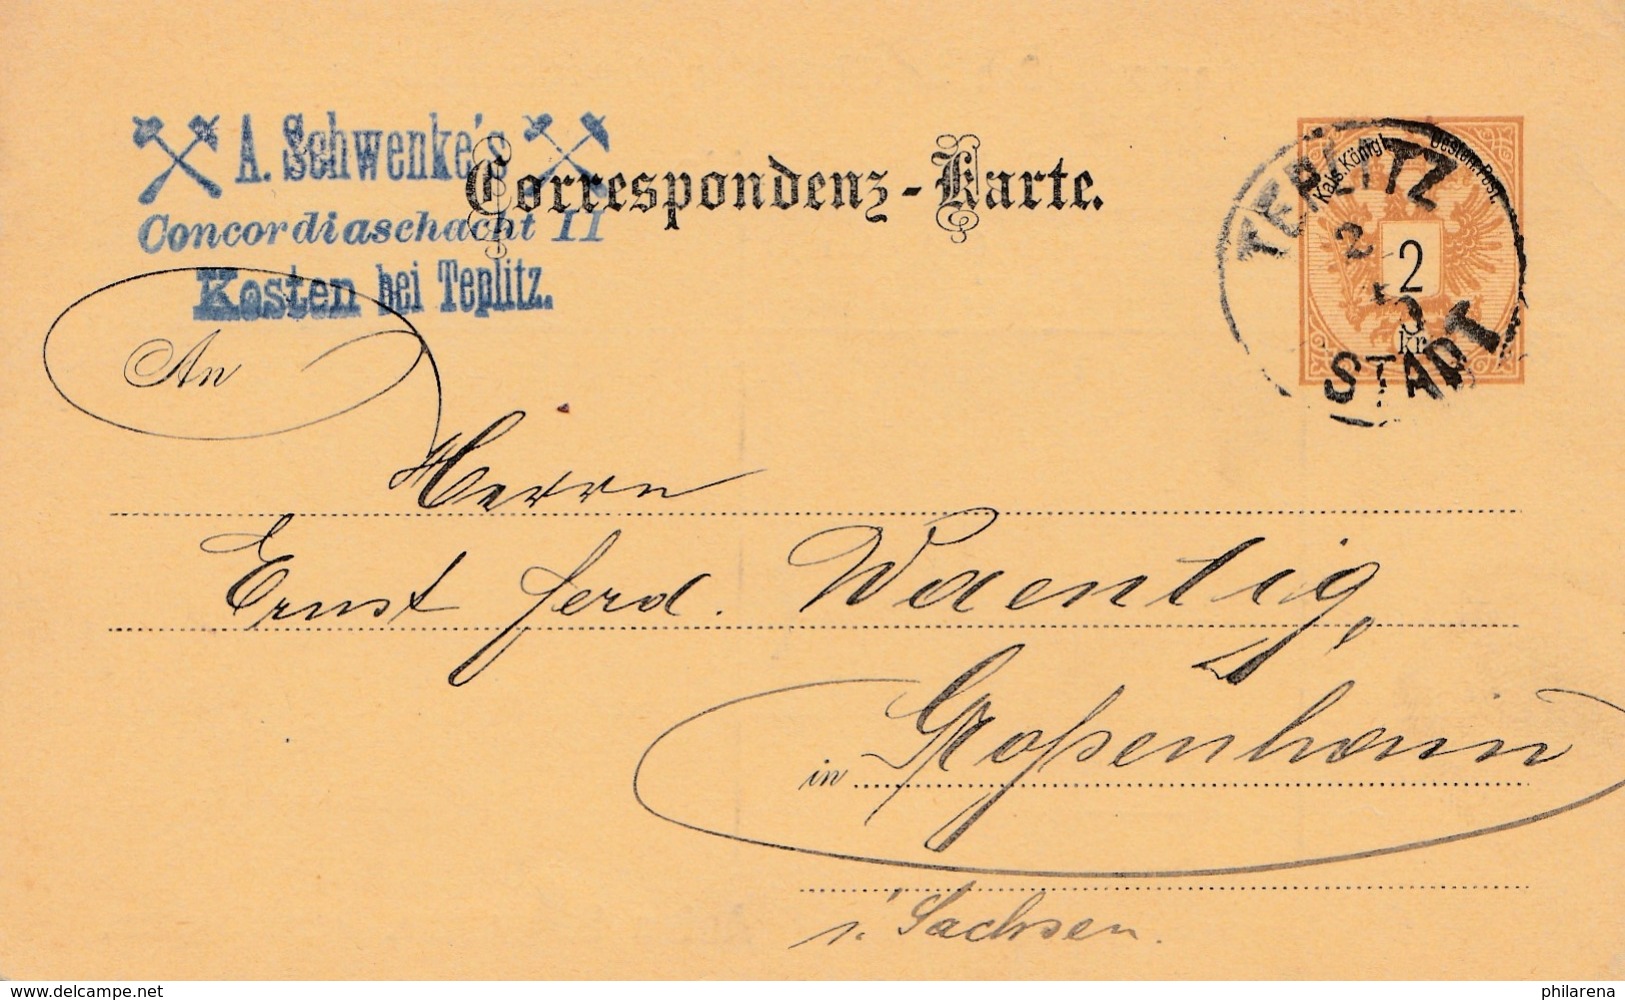 A. Schwenke's
Concordiaschacht II
Kosten bei Teplitz.
Correspondenz-Karte.
Kais. Königl. Oesterr. Post.
2
kr.
TEPLITZ
2
STADT
An
Herrn
Ernst Ferd. Waentig,
in Großenhain
i. Sachsen.
www.delcampe.net
philarena